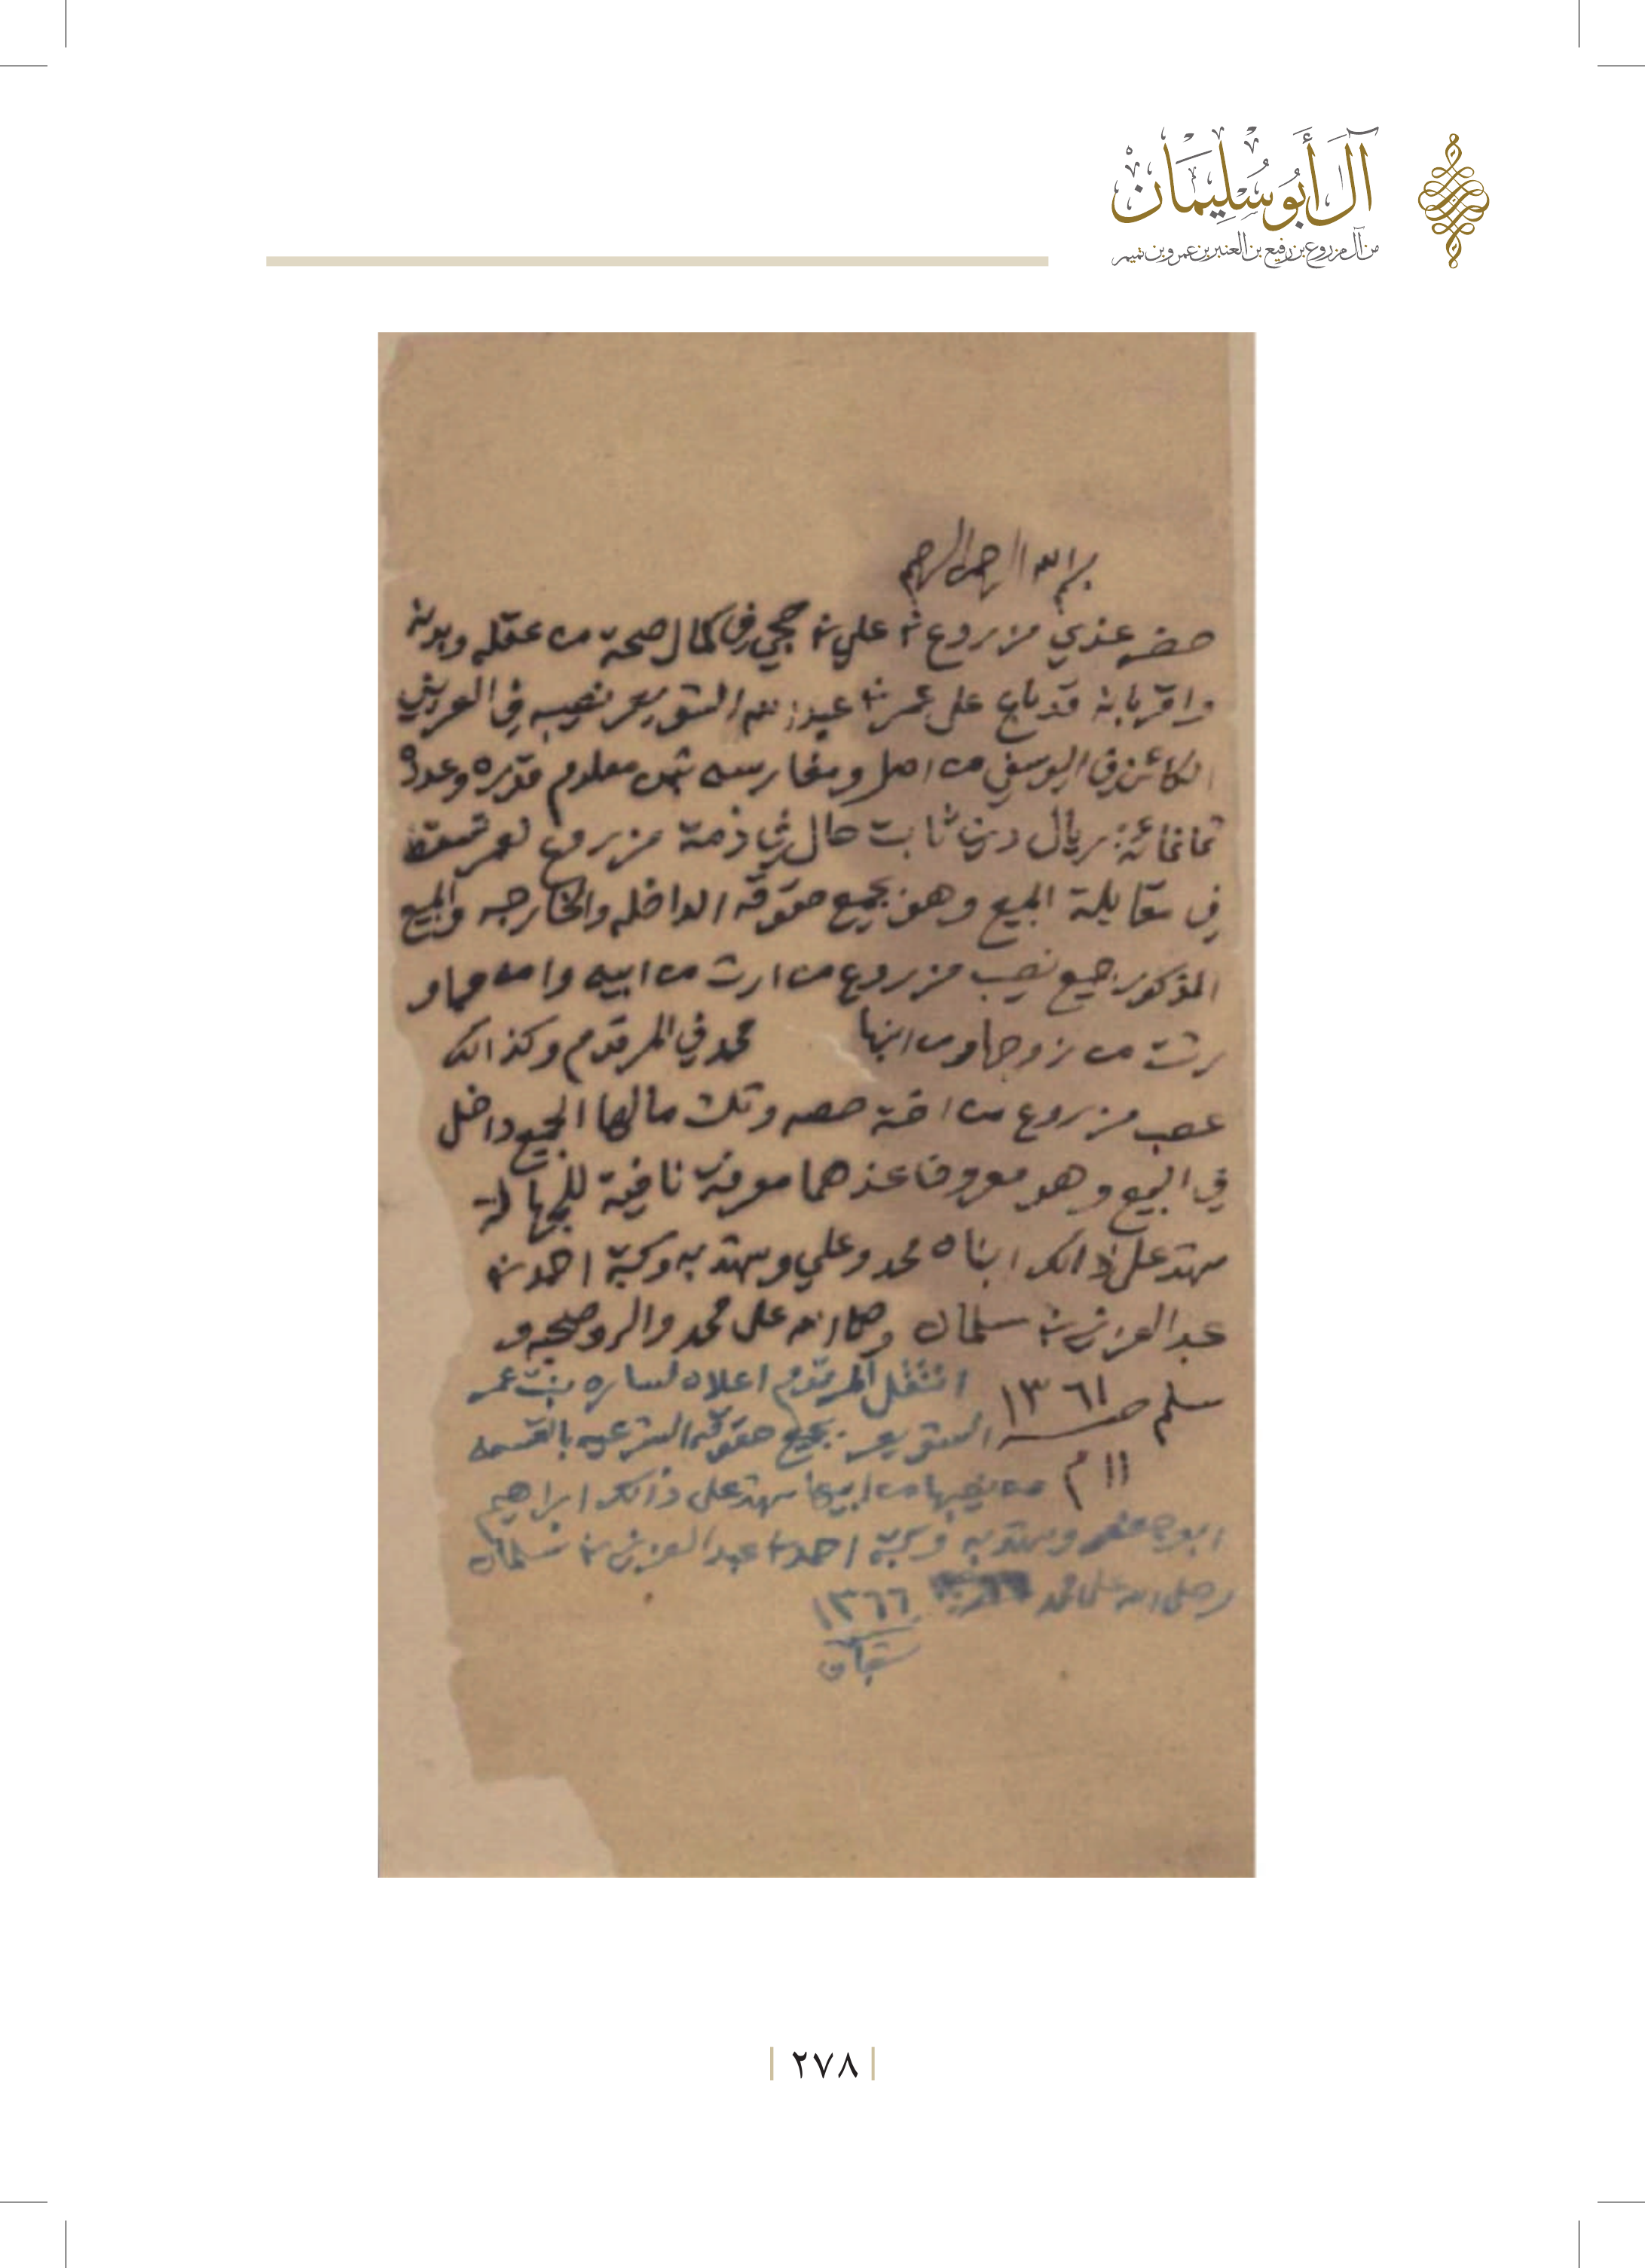 آل أبو سليمان
من آل مزروع بن رفيع بن العنبر بن عمرو بن تميم
بسم الله الرحمن الرحيم
حضر عندي مزروع بن علي بن حجي في كمال صحة من عقله وبدنه
واقر بانه قد باع على عمر بن عبدالله الشويعر نصيبه في العريض
الكائن في اليوسفي من اصل ومغارسه بثمن معلوم قدره وعدده
ثمانمائة ريال دين ثابت حال في ذمة مزروع لعمر تسقط
في مقابلة المبيع وهو بجميع حقوقه الداخله والخارجه والمبيع
المذكور جميع نصيب مزروع من ارث من ابيه وامه مما و
رثت من زوجها ومن ابنها محمد في المرقدم وكذالك
عصب مزروع من اخته حصه وثلث مالها الجميع داخل
في البيع وهو معروف عندهما معرفة نافية للجهالة
شهد على ذالك ابناه محمد وعلي وشهد به وكتبه احمد بن
عبدالعزيز بن سلمان وصلى الله على محمد واله وصحبه و
سلم ١٣٦١
١١ م
انتقل المرقدم اعلاه لساره بنت عمر
الشويعر بجميع حقوقه الشرعيه بالقسمه
من نصيبها من ابيها شهد على ذالك ابراهيم
ابو وشهد به وكتبه احمد بن عبدالعزيز بن سلمان
وصلى الله على محمد ١٣٦٦
٢٧٨